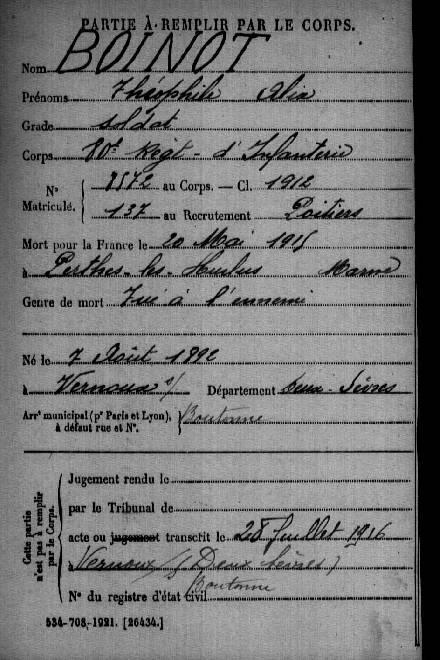 PARTIE À REMPLIR PAR LE CORPS.
Nom BOINOT
Prénoms Théophile Alix
Grade soldat
Corps Régt - d'Infanterie
N° Matricule. 8572 au Corps. — Cl. 1912
137 au Recrutement Poitiers
Mort pour la France le 20 Mai 1915
à Perthes-les-Hurlus Marne
Genre de mort Tué à l'ennemi
Né le 7 Août 1892
à Vernoux s/ Département Deux-Sèvres
Arrt municipal (pr Paris et Lyon), à défaut rue et N°. Boutonne
Cette partie n'est pas à remplir par le Corps.
Jugement rendu le
par le Tribunal de
acte ou jugement transcrit le 28 Juillet 1916
à Vernoux s/ (Deux Sèvres)
Boutonne
N° du registre d'état civil
534-708-1921. [26434.]